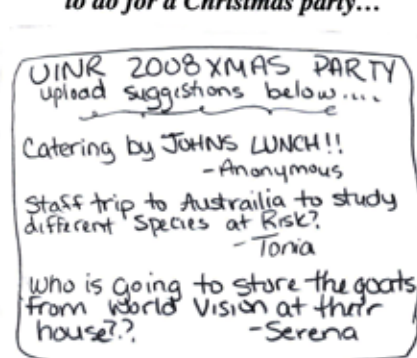 to do for a Christmas party...
UINR 2008 XMAS PARTY
upload suggestions below....
Catering by JOHNS LUNCH!!
-Anonymous
Staff trip to Austrailia to study
different Species at Risk?
- Tonia
Who is going to store the goats
from World Vision at their
house??
-Serena